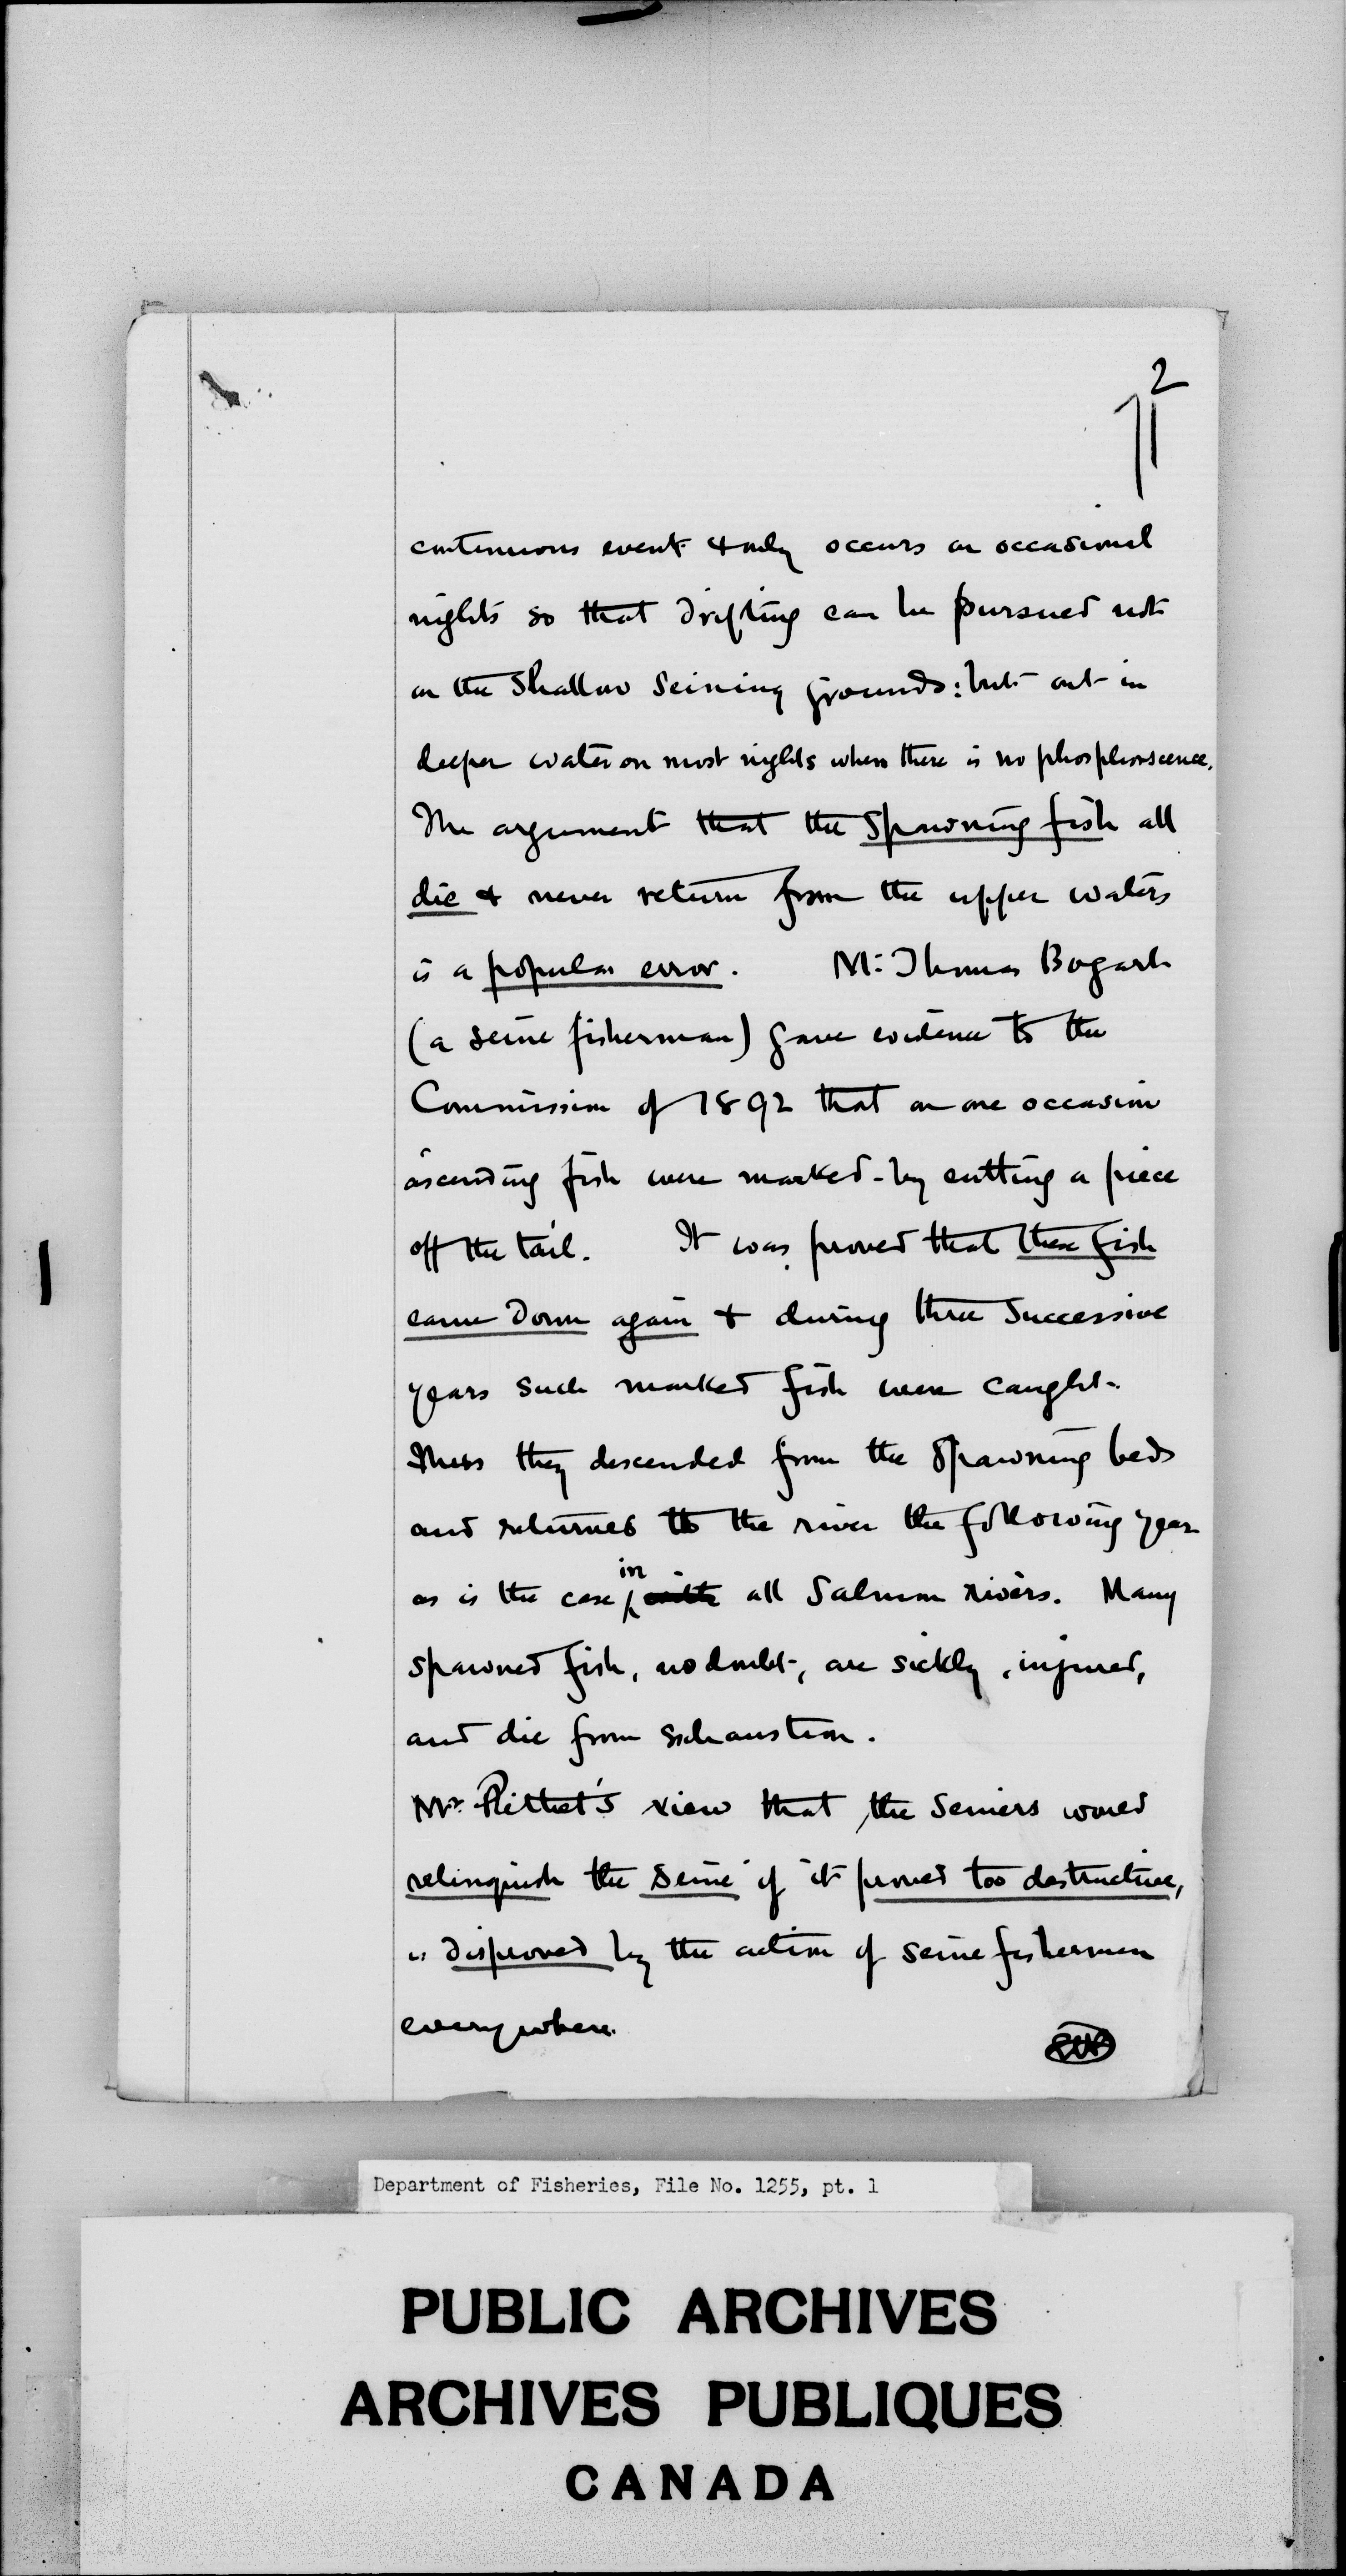 2
continuous event & only occurs on occasional
nights so that drifting can be pursued not
on the shallow Seining grounds: but out in
deeper water on most nights when there is no phosphorscence.
The argument that the spawning fish all
die & never return from the upper waters
is a popular error. Mr. Thomas Bogart
(a seine fisherman) gave evidence to the
Commission of 1892 that on one occasion
ascending fish were marked - by cutting a piece
off the tail. It was proved that these fish
came down again & during three successive
years such marked fish were caught.
Thus they descended from the spawning beds
and returned to the river the following year
as is the case in all Salmon rivers. Many
spawned fish, no doubt, are sickly, injured,
and die from exhaustion.
Mr. Rithet's view that the Seiners would
relinquish the seine if it proved too destructive,
is disproved by the action of seine fishermen
everywhere.
Department of Fisheries, File No. 1255, pt. 1
PUBLIC ARCHIVES
ARCHIVES PUBLIQUES
CANADA